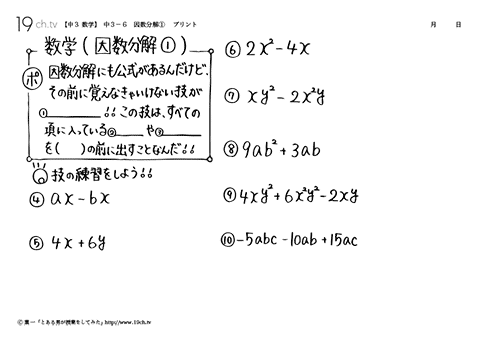 19ch.tv 【中3 数学】 中3-6 因数分解① プリント 月 日
数学(因数分解①)
ポ 因数分解にも公式があるんだけど、
その前に覚えなきゃいけない技が
①________!! この技は、すべての
項に入っている②____や③____
を( )の前に出すことなんだ!!
技の練習をしよう!!
④ ax-bx
⑤ 4x+6y
⑥ 2x²-4x
⑦ xy²-2x²y
⑧ 9ab²+3ab
⑨ 4xy²+6x²y²-2xy
⑩ -5abc-10ab+15ac
Ⓒ 葉一「とある男が授業をしてみた」http://www.19ch.tv